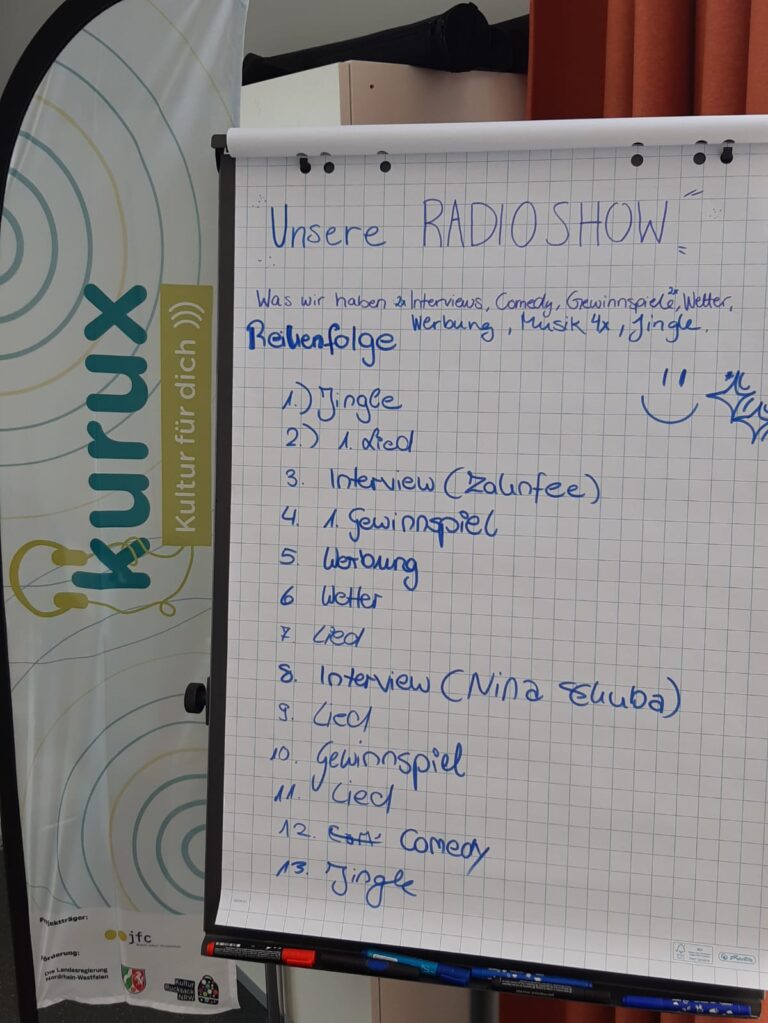 Unsere RADIOSHOW
Was wir haben 2x Interviews, Comedy, Gewinnspiele 2x, Wetter,
Werbung, Musik 4x, Jingle.
Reihenfolge
1.) Jingle
2.) 1. Lied
3. Interview (Zahnfee)
4. 1. Gewinnspiel
5. Werbung
6 Wetter
7 Lied
8. Interview (Nina Schuba)
9. Lied
10. Gewinnspiel
11. Lied
12. Comedy
13. Jingle
kurux
Kultur für dich )))
Projektträger:
jfc
Förderung:
Die Landesregierung
Nordrhein-Westfalen
Kultur
Rucksack
NRW